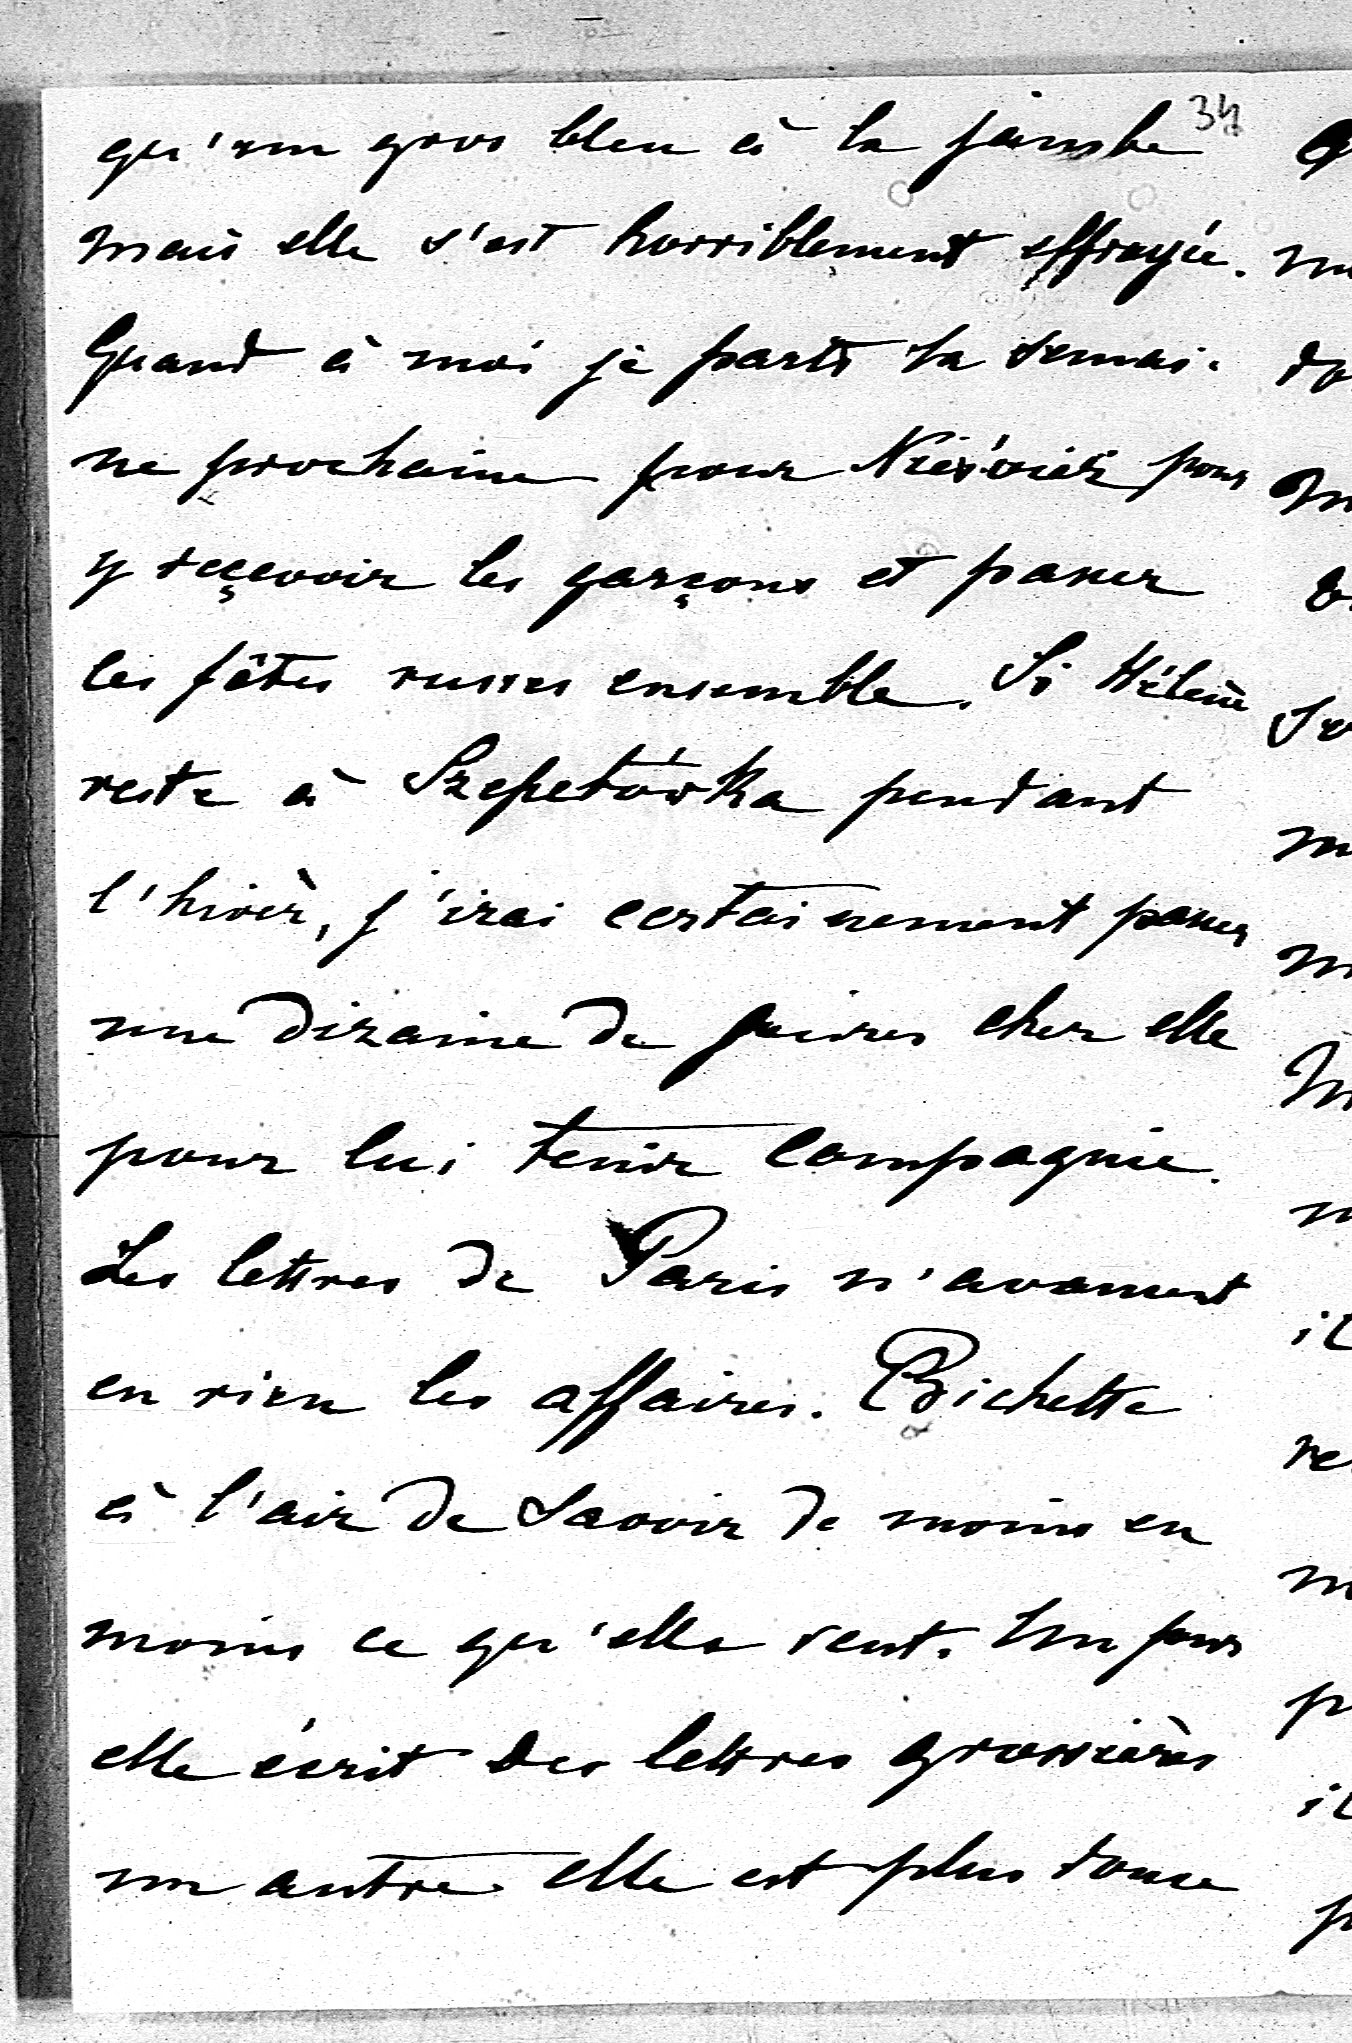 34
qu'un gros bleu à la jambe
mais elle s'est horriblement effrayée.
Quand à moi je parts la semai-
ne prochaine pour Nieśwież pour
y reçevoir les garçons et passer
les fêtes russes ensemble. Si Hélène
reste à Szepetówka pendant
l'hivèr, j'irai certainement passer
une dizaine de jours chez elle
pour lui tenir compagnie.
Les lettres de Paris n'avancent
en rien les affaires. Bichette
à l'air de savoir de moins en
moins ce qu'elle veut. Un jour
elle écrit des lettres grossières
un autre elle est plus douce